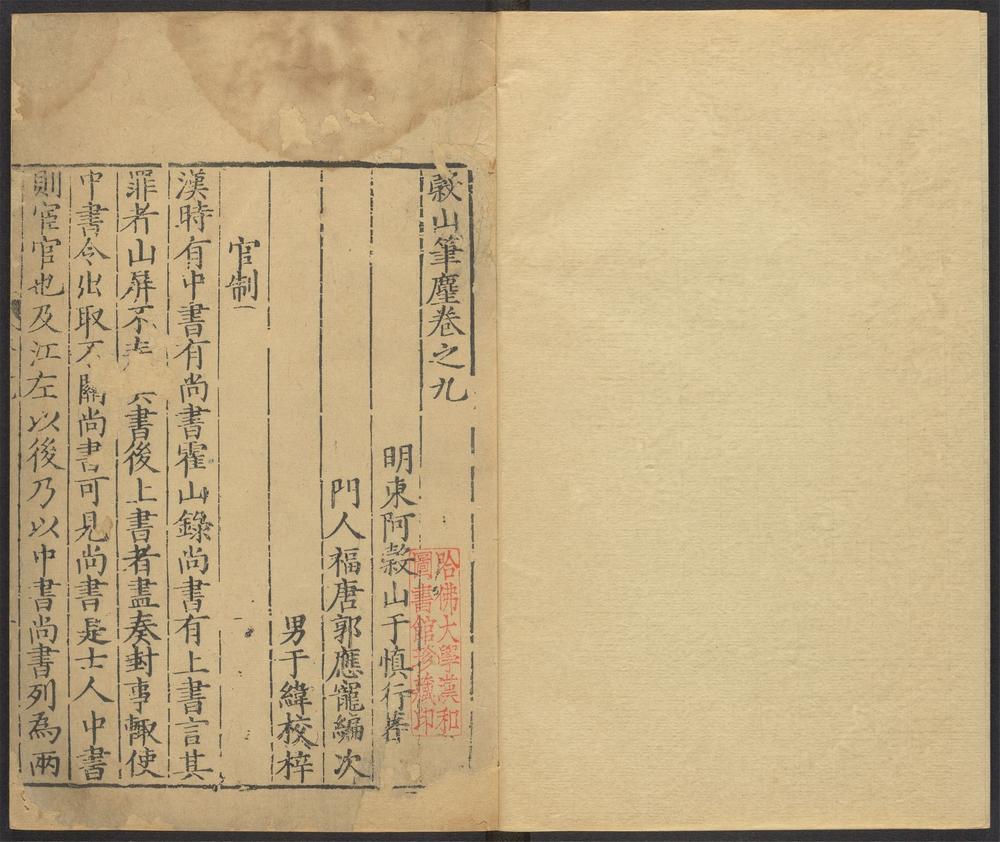 糓山筆麈卷之九
明東阿穀山于慎行著
門人福唐郭應寵編次
男于緯校梓
官制一
漢時有中書有尚書霍山錄尚書有上書言其
罪者山屏不書後上書者盡奏封事輙使
中書令出取不關尚書可見尚書是士人中書
則宦官也及江左以後乃以中書尚書列為兩
哈佛大學漢和
圖書館珍藏印